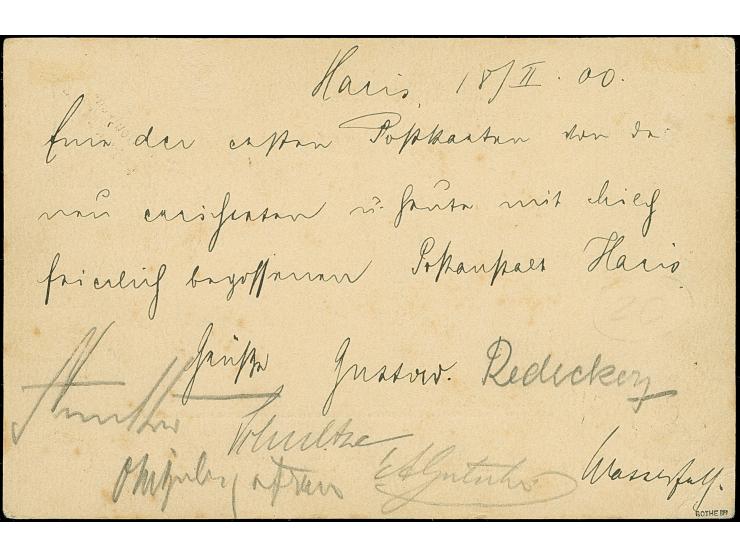 Haris, 18/II. 00.
Eine der ersten Postkarten von der
neu errichteten u. heute mit Milch
feierlich begossenen Postanstalt Haris.
Grüße Gustav. Redecker
Schultze
Wasserfall.
ROTHE BPP